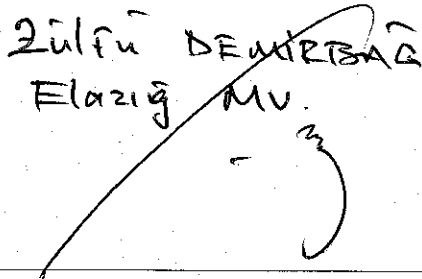 Zülfü DEMİRBAĞ
Elazığ Mv.